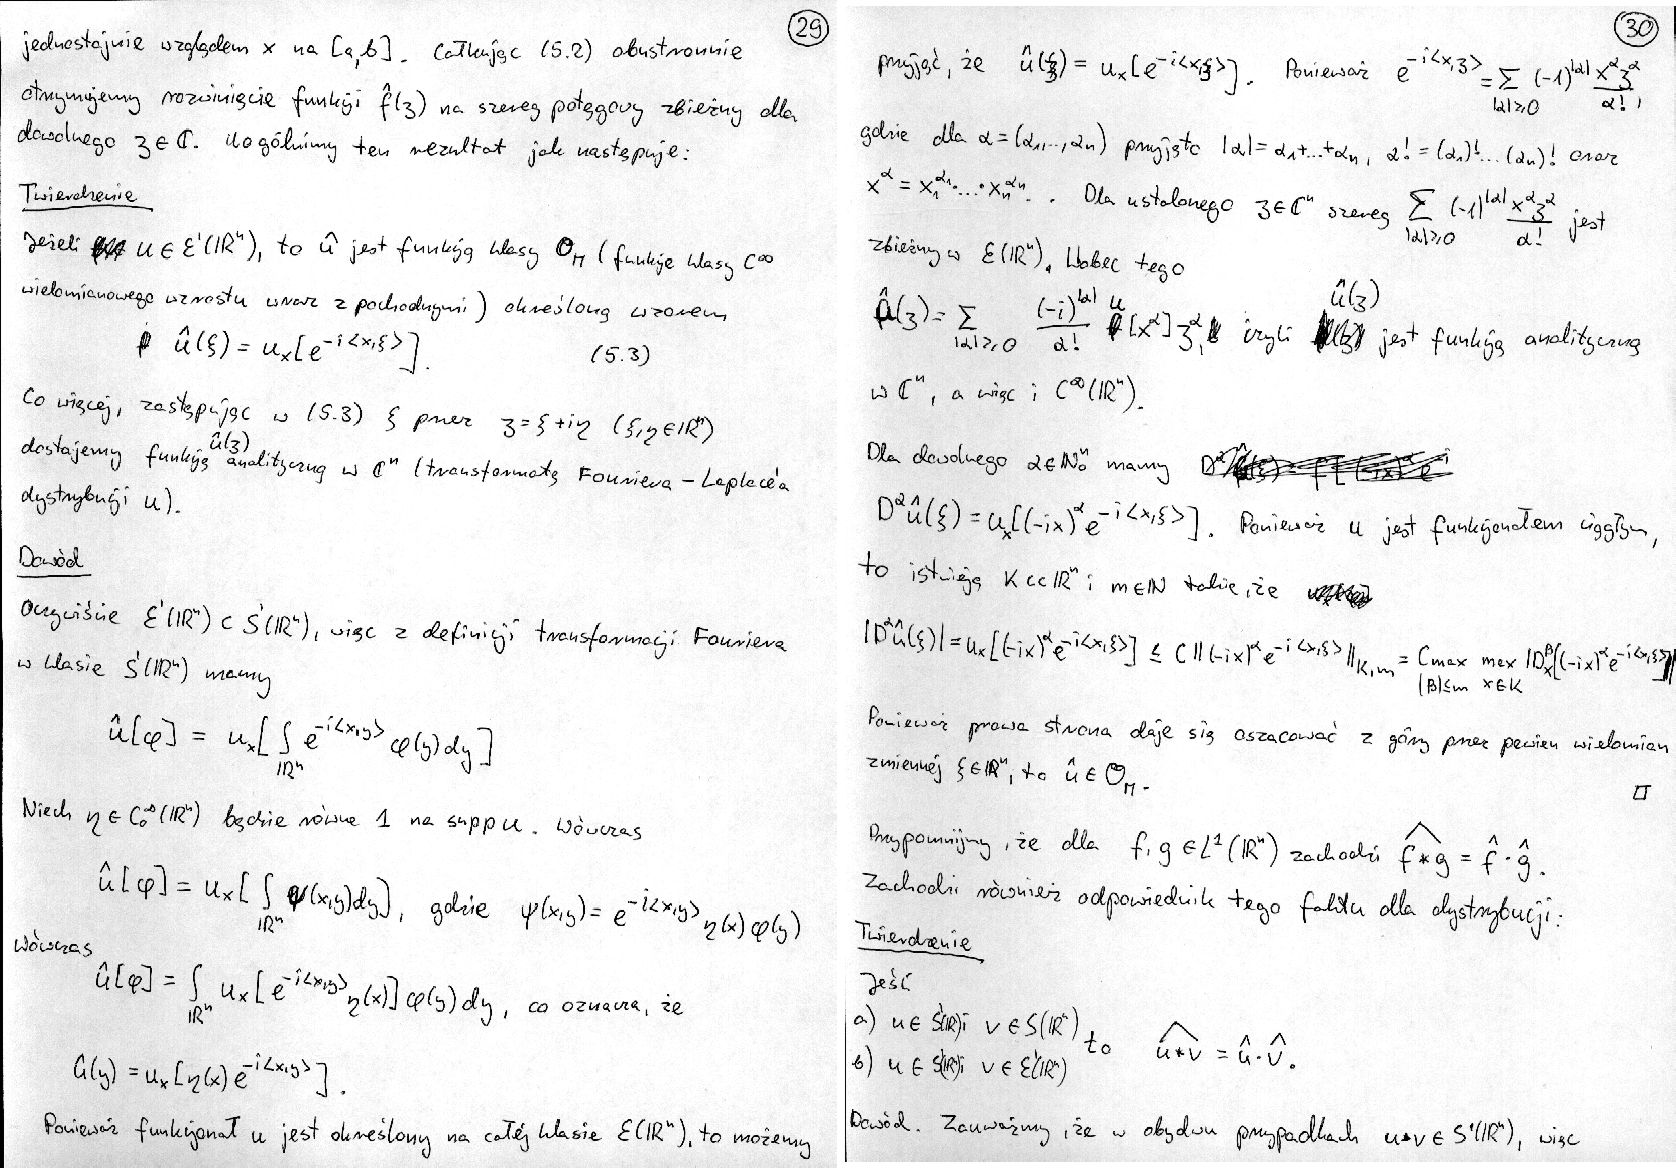 29
jednostajnie względem x na [a,b]. Całkując (5.2) obustronnie
otrzymujemy rozwinięcie funkcji f̂(z) na szereg potęgowy zbieżny dla
dowolnego z∈ℂ. Uogólnimy ten rezultat jak następuje:
Twierdzenie
Jeżeli u∈ℰ'(ℝⁿ), to û jest funkcją klasy O_M (funkcje klasy C^∞
wielomianowego wzrostu wraz z pochodnymi) określoną wzorem
û(ξ) = u_x[e^{-i<x,ξ>}]. (5.3)
Co więcej, zastępując w (5.3) ξ przez z=ξ+iη (ξ,η∈ℝⁿ)
dostajemy funkcję û(z) analityczną w ℂⁿ (transformatę Fouriera-Laplace'a
dystrybucji u).
Dowód
Oczywiście ℰ'(ℝⁿ)⊂S'(ℝⁿ), więc z definicji transformacji Fouriera
w klasie S'(ℝⁿ) mamy
û[φ] = u_x[∫_{ℝⁿ} e^{-i<x,y>} φ(y)dy]
Niech η∈C₀^∞(ℝⁿ) będzie równe 1 na supp u. Wówczas
û[φ] = u_x[∫_{ℝⁿ} ψ(x,y)dy], gdzie ψ(x,y) = e^{-i<x,y>} η(x)φ(y)
Wówczas
û[φ] = ∫_{ℝⁿ} u_x[e^{-i<x,y>} η(x)]φ(y)dy, co oznacza, że
û(y) = u_x[η(x)e^{-i<x,y>}].
Ponieważ funkcjonał u jest określony na całej klasie ℰ(ℝⁿ), to możemy
30
przyjąć, że û(z) = u_x[e^{-i<x,z>}]. Ponieważ e^{-i<x,z>} = ∑_{|α|≥0} (-i)^{|α|} x^α z^α / α!,
gdzie dla α=(α₁,..,αₙ) przyjęto |α|=α₁+..+αₙ, α!=(α₁)!...(αₙ)! oraz
x^α = x₁^{α₁}·...·xₙ^{αₙ}. Dla ustalonego z∈ℂⁿ szereg ∑_{|α|≥0} (-i)^{|α|} x^α z^α / α! jest
zbieżny w ℰ(ℝⁿ). Wobec tego
û(z) = ∑_{|α|≥0} (-i)^{|α|} / α! u[x^α] z^α, czyli û(z) jest funkcją analityczną
w ℂⁿ, a więc i C^∞(ℝⁿ).
Dla dowolnego α∈ℕ₀ⁿ mamy
D^α û(ξ) = u_x[(-ix)^α e^{-i<x,ξ>}]. Ponieważ u jest funkcjonałem ciągłym,
to istnieją K⊂⊂ℝⁿ i m∈ℕ takie, że
|D^α û(ξ)| = u_x[(-ix)^α e^{-i<x,ξ>}] ≤ C||(-ix)^α e^{-i<x,ξ>}||_{K,m} = C max_{|β|≤m} max_{x∈K} |D_x^β[(-ix)^α e^{-i<x,ξ>}]|
Ponieważ prawa strona daje się oszacować z góry przez pewien wielomian
zmiennej ξ∈ℝⁿ, to û∈O_M. □
Przypomnijmy, że dla f,g∈L¹(ℝⁿ) zachodzi \widehat{f*g} = f̂·ĝ.
Zachodzi również odpowiednik tego faktu dla dystrybucji:
Twierdzenie
Jeśli
a) u∈S'(ℝⁿ) i v∈S(ℝⁿ)
b) u∈S'(ℝⁿ) i v∈ℰ'(ℝⁿ) to \widehat{u*v} = û·v̂.
Dowód. Zauważmy, że w obydwu przypadkach u*v∈S'(ℝⁿ), więc